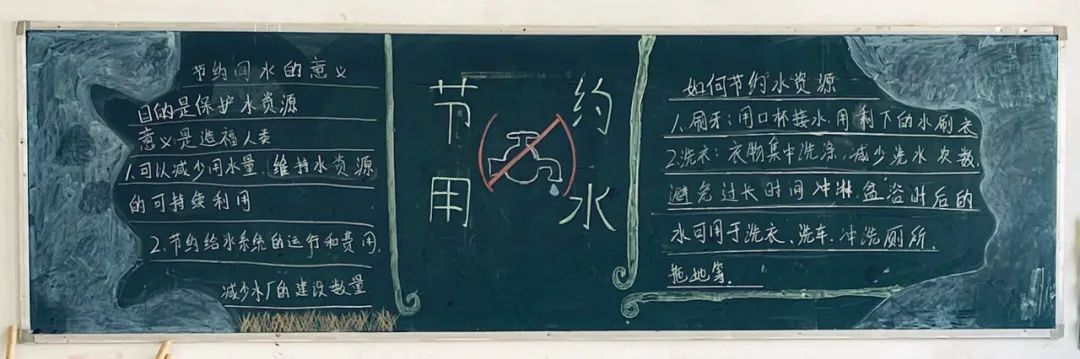 节约用水的意义
目的是保护水资源
意义是造福人类
1.可以减少用水量,维持水资源
的可持续利用
2.节约给水系统的运行和费用,
减少水厂的建设数量
节约
用水
如何节约水资源
1.刷牙:用口杯接水,用剩下的水刷衣
2.洗衣:衣物集中洗涤,减少洗水次数
避免过长时间冲淋盆浴时后的
水可用于洗衣、洗车、冲洗厕所、
拖地等.